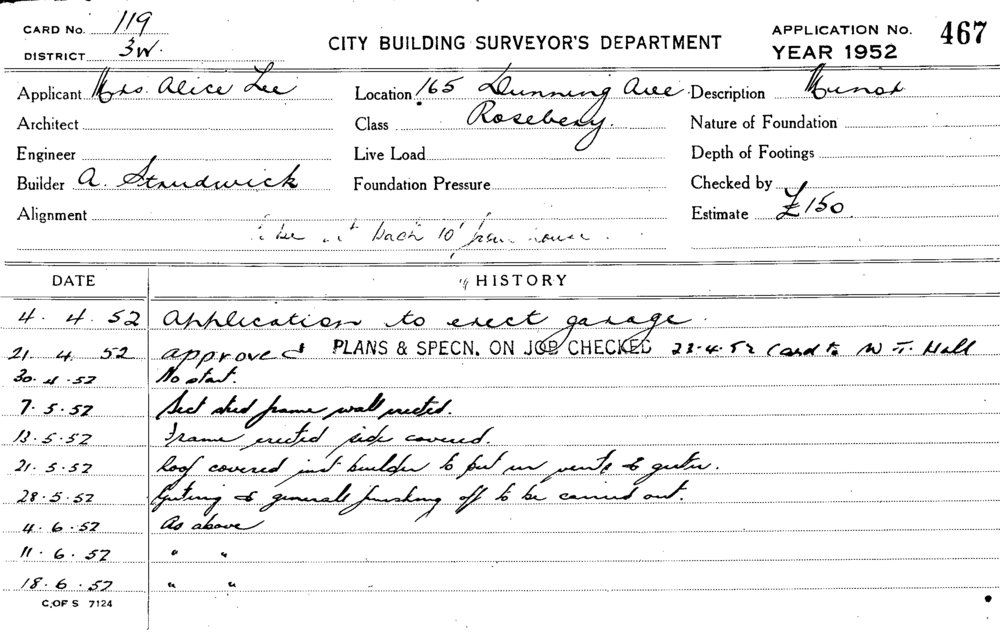 CARD No. 119
DISTRICT 3W.
CITY BUILDING SURVEYOR'S DEPARTMENT
APPLICATION No. 467
YEAR 1952
Applicant Mrs. Alice Lee Location 165 Dunning Ave Description Minor
Architect Class Rosebery. Nature of Foundation
Engineer Live Load Depth of Footings
Builder A. Strudwick Foundation Pressure Checked by
Alignment Estimate £150
be back 10' from house.
DATE HISTORY
4. 4. 52 Application to erect garage.
21. 4. 52 approved PLANS & SPECN. ON JOB CHECKED 28.4.52 Card to W T. Hall
30.4.52 No start.
7.5.52 Sect shed frame wall erected.
13.5.52 Frame erected side covered.
21.5.52 Roof covered inst builder to put in vents & gutter.
28.5.52 Gutring & generals finishing off to be carried out.
4.6.52 As above
11.6.52 " "
18.6.52 " "
C. OF S 7124